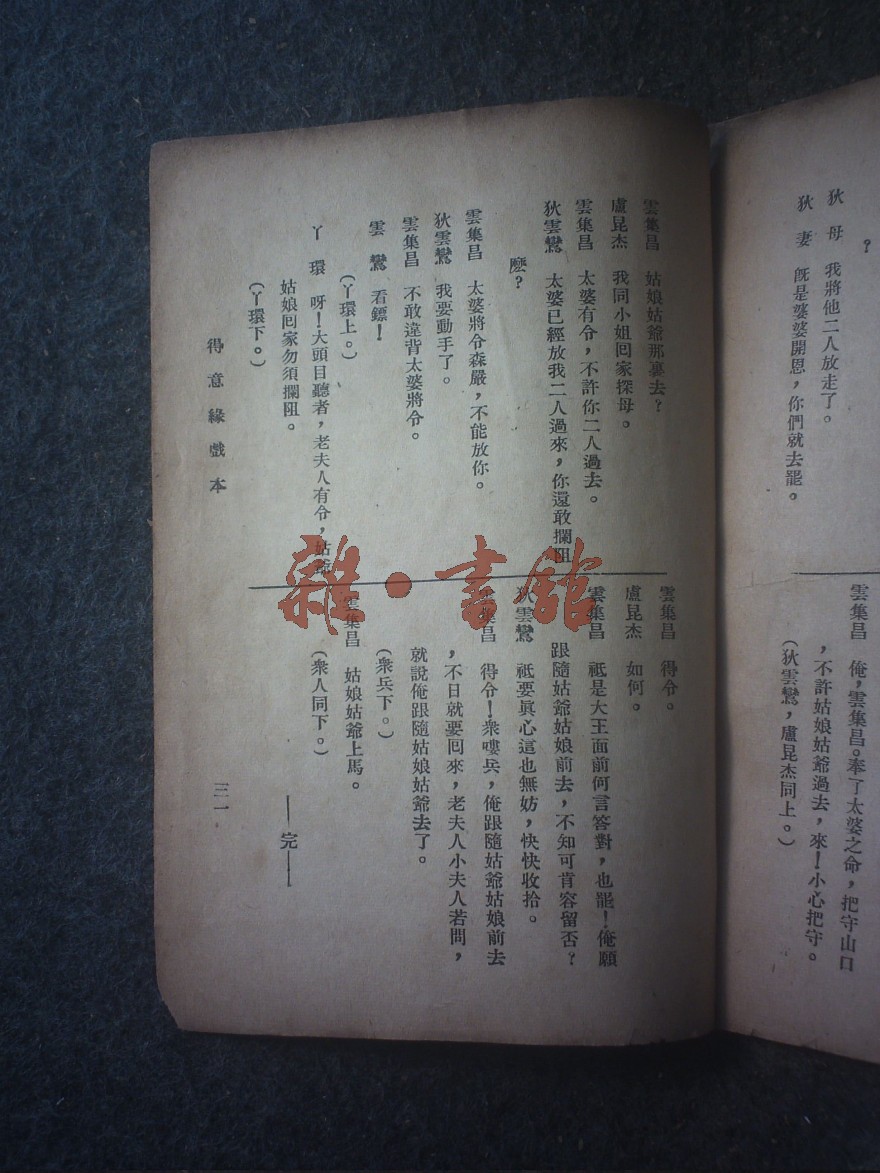 ？
狄　母　我將他二人放走了。
狄　妻　旣是婆婆開恩，你們就去罷。
雲集昌　俺，雲集昌。奉了太婆之命，把守山口
，不許姑娘姑爺過去，來！小心把守。
（狄雲鸞，盧昆杰同上。）
雲集昌　姑娘姑爺那裏去？
盧昆杰　我同小姐囘家探母。
雲集昌　太婆有令，不許你二人過去。
狄雲鸞　太婆已經放我二人過來，你還敢攔阻
麽？
雲集昌　太婆將令森嚴，不能放你。
狄雲鸞　我要動手了。
雲集昌　不敢違背太婆將令。
雲　鸞　看鏢！
（丫環上。）
丫　環　呀！大頭目聽者，老夫人有令，姑爺
姑娘囘家勿須攔阻。
（丫環下。）
雲集昌　得令。
盧昆杰　如何。
雲集昌　祗是大王面前何言答對，也罷！俺願
跟隨姑爺姑娘前去，不知可肯容留否？
狄雲鸞　祗要眞心這也無妨，快快收拾。
雲集昌　得令！衆嘍兵，俺跟隨姑爺姑娘前去
，不日就要囘來，老夫人小夫人若問，
就說俺跟隨姑娘姑爺去了。
（衆兵下。）
雲集昌　姑娘姑爺上馬。
（衆人同下。）
——完——
得意緣戲本
三一
雜·書館